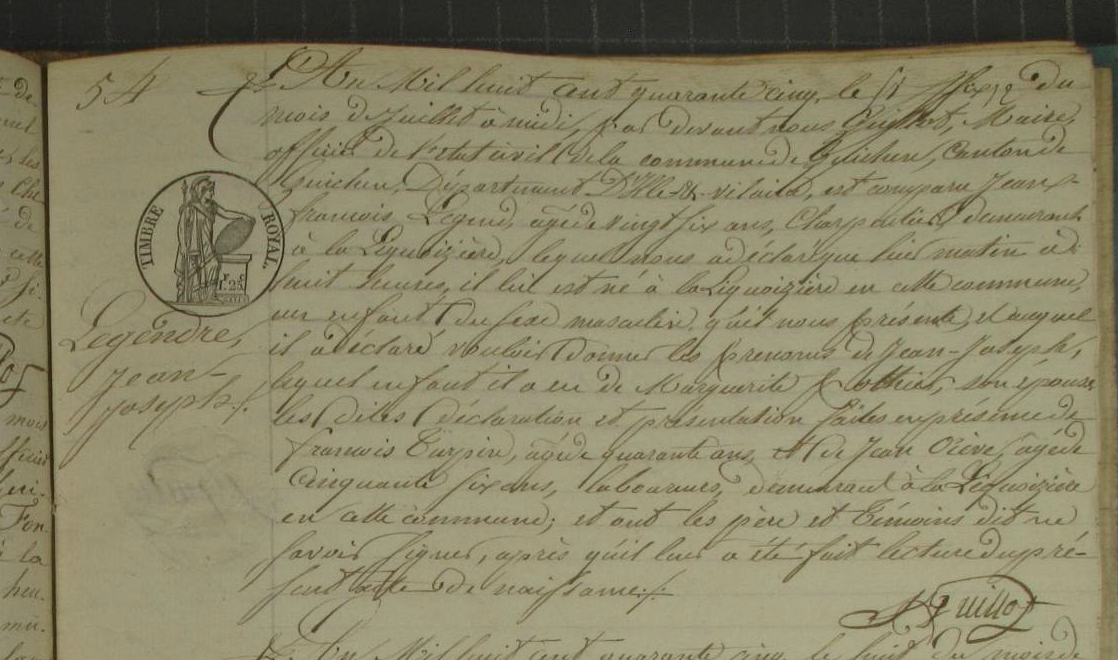 54
L'An Mil huit cent quarante cinq, le du
mois de Juillet à midi, par devant nous Guillot, Maire,
officier de l'état civil de la commune de Guichen, Canton de
Guichen, Département D'Ille-&-vilaine, est comparu Jean-
françois Legend, agé de vingt six ans, Charpentier, demeurant
à la Liguoizière, lequel nous a déclaré que hier matin à
huit heures, il lui est né à la Liguoizière en cette commune,
un enfant du sexe masculin, qu'il nous présente, et auquel
il a déclaré vouloir donner les prénoms de Jean-Joseph,
lequel enfant il a eu de Marguerite son épouse,
les dites déclaration et présentation faites en présence de
françois Turpin, agé de quarante ans, et de Jean agé de
Cinquante six ans, laboureurs, demeurant à la Liguoizière
en cette commune; et ont les père et témoins dit ne
savoir signer, après qu'il leur a été fait lecture du pré-
sent acte de naissance./.
Guillot
TIMBRE ROYAL.
Legendre,
Jean-
Joseph./.
L'An Mil huit cent quarante cinq, le huit du mois de